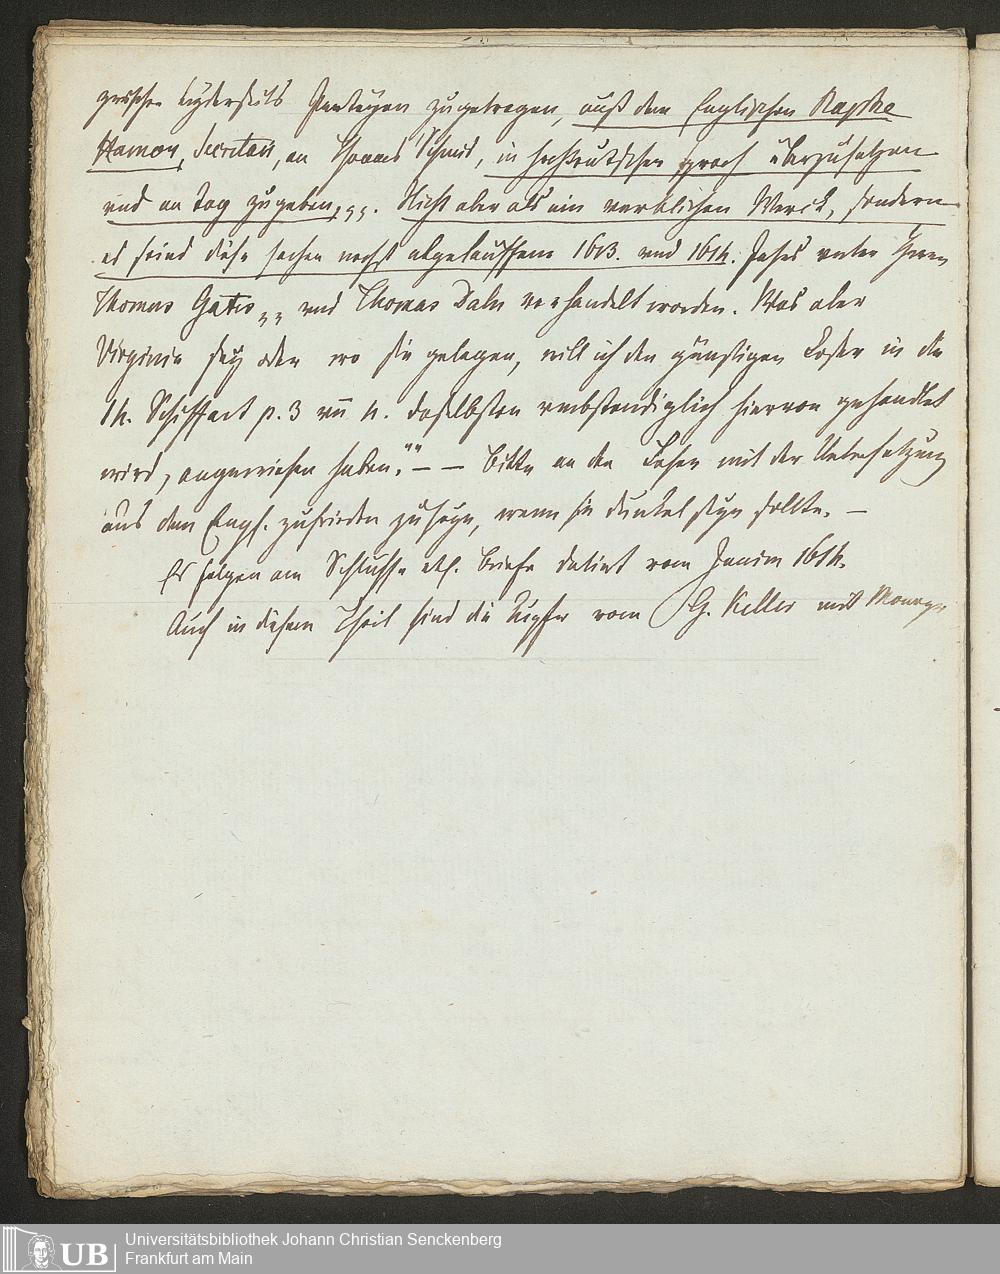 zwischen beyderseits Partheyen zugetragen, auß dem Englischen Raphe
Hamor, Secretari, an Thomas Schmid, in hochteutscher sprach uberzusetzen
und an Tag zugeben,,,. Nicht aber als ein verblichen Werck, sondern
es seind diese sachen nechst abgelauffene 1613. und 1614. Jahrs unter Herrn
Thomas Gates,, und Thomas Dale verhandelt worden. Was aber
Virginia sey oder wo sie gelegen, will ich den günstigen Leser in die
14. Schiffart p. 3 un 4. daselbsten umbstendiglich hiervon gehandlet
wird, angewiesen haben." — — Bitte an den Leser mit der Uebersetzung
aus dem Engl. zufrieden zu seyn, wenn sie dunkel seyn sollte. —
Es folgen am Schlusse etl. Briefe datirt vom Junim 1614.
Auch in diesem Theil sind die Kupfer vom G. Keller mit Monogr.
Universitätsbibliothek Johann Christian Senckenberg
UB Frankfurt am Main